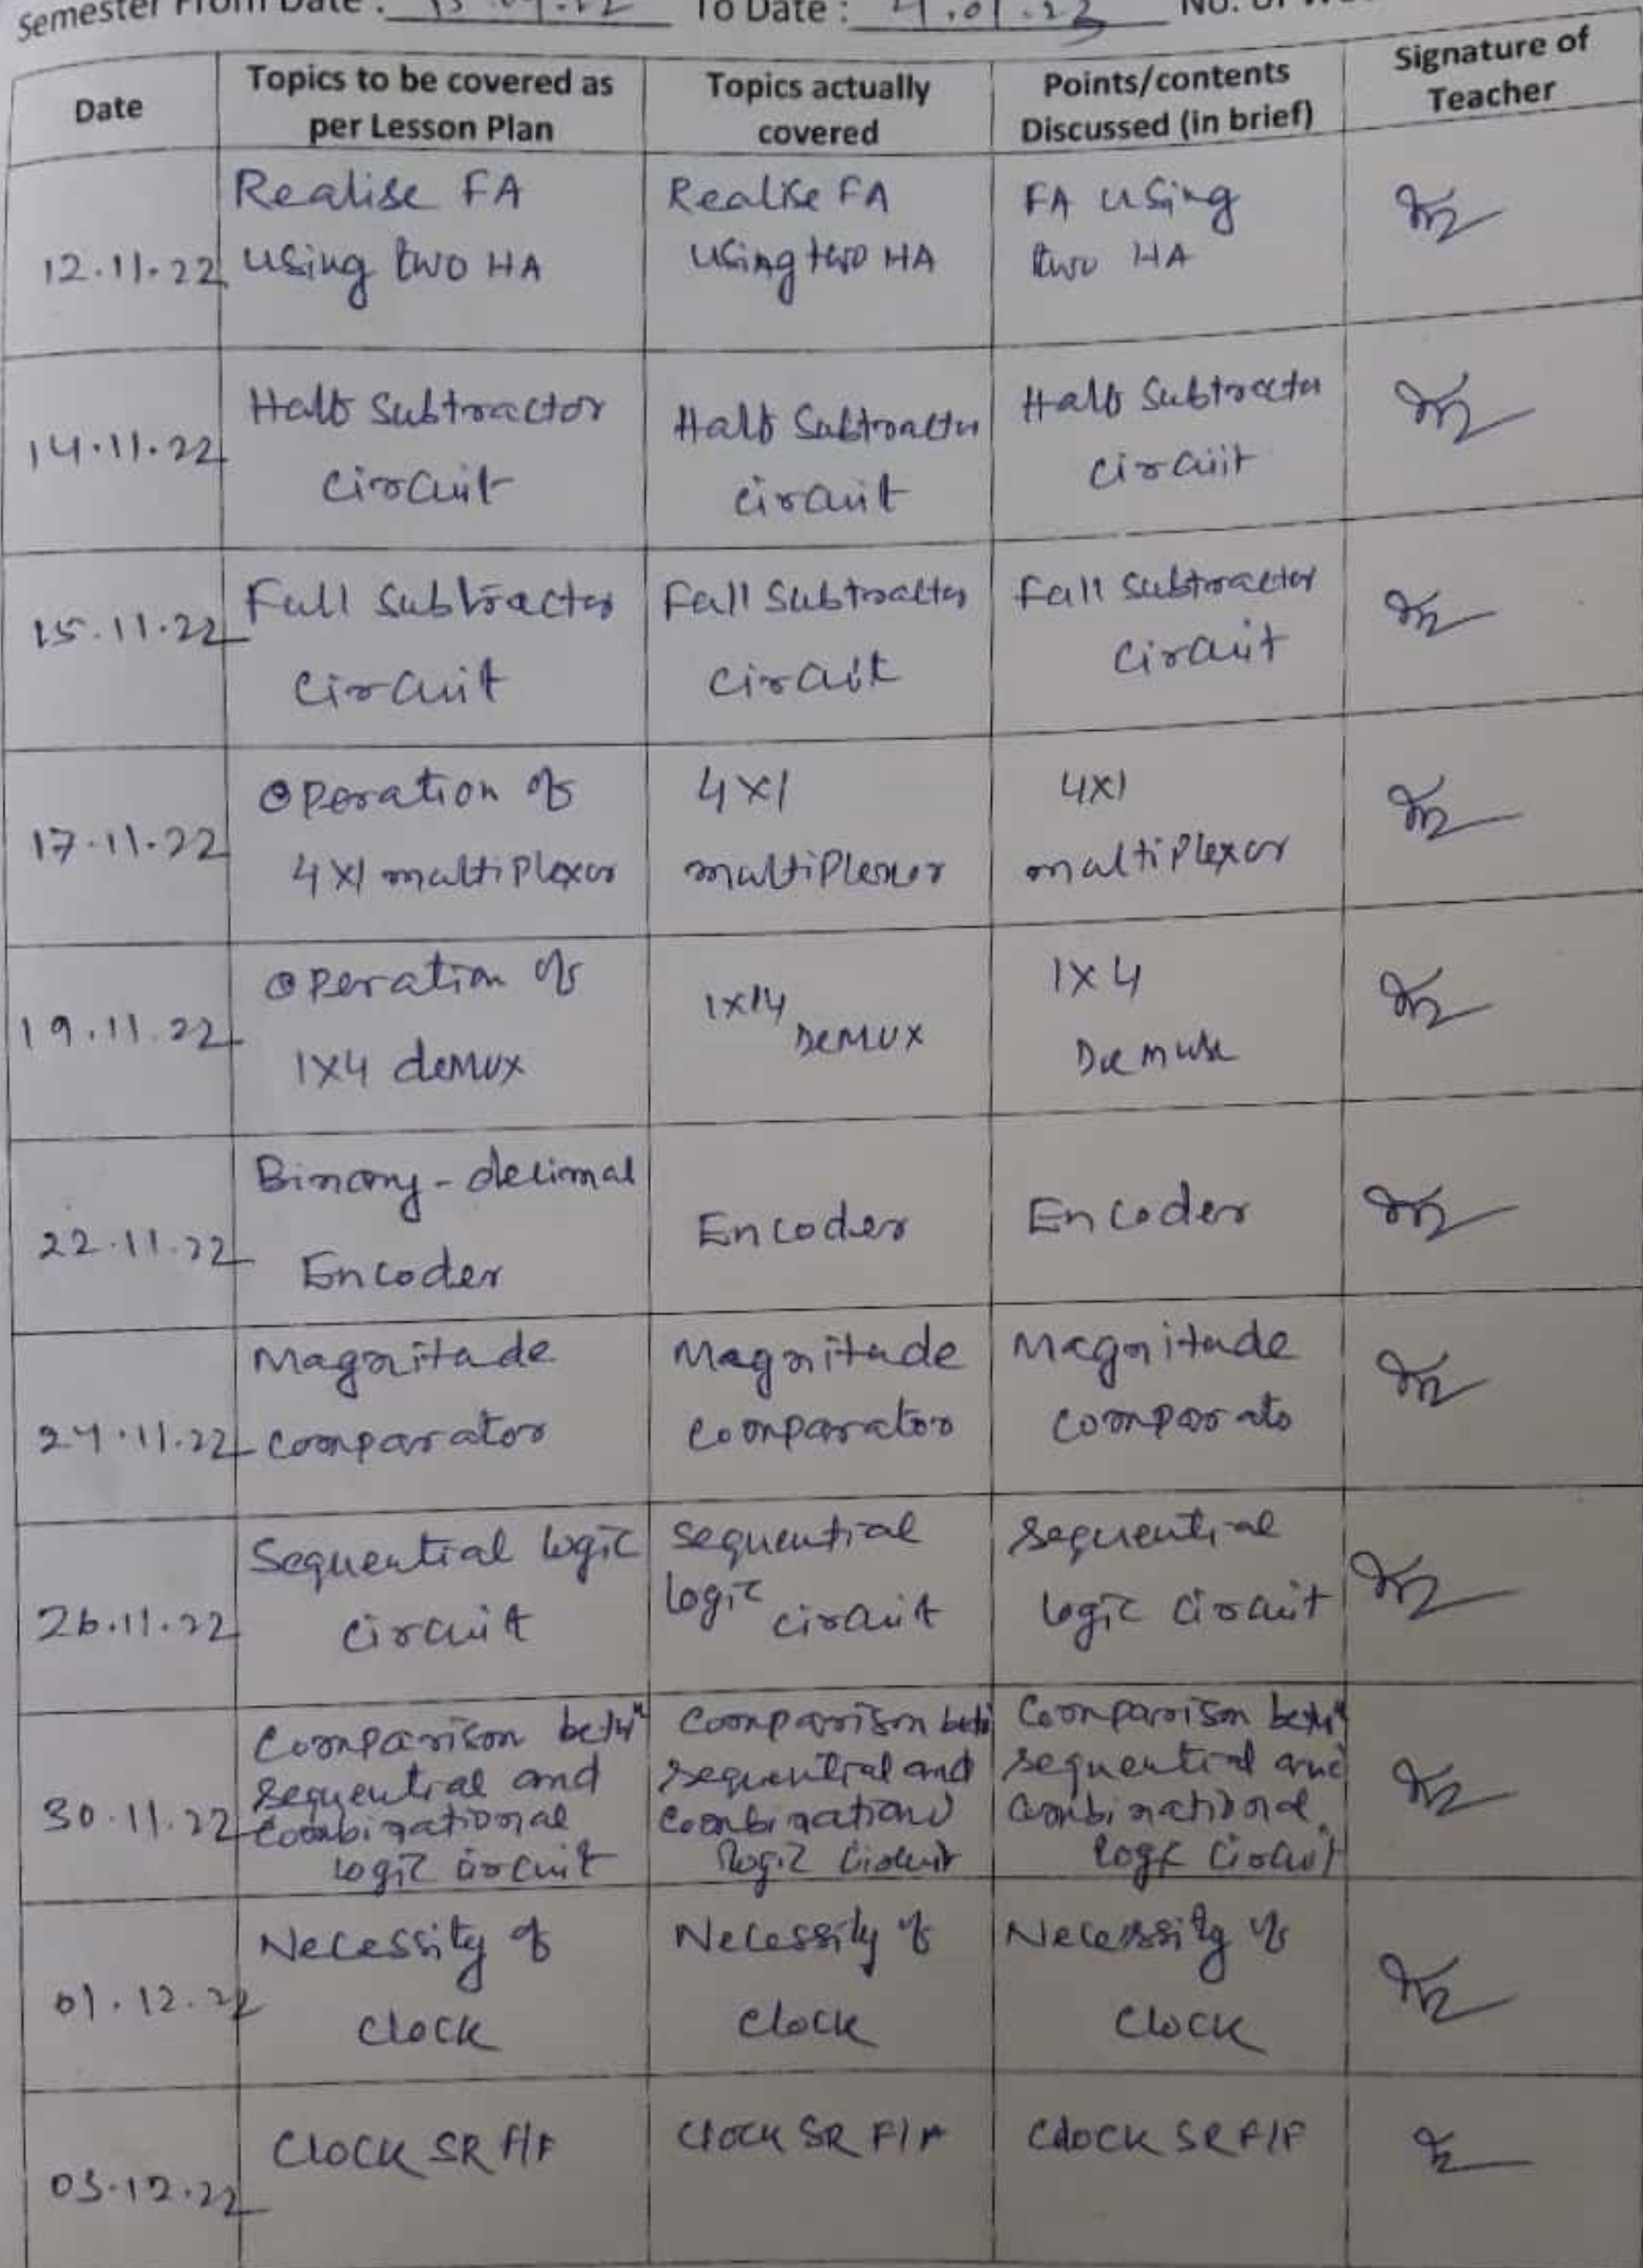 Semester From Date : 15.09.22 To Date : 21.01.23 No. of
Date
Topics to be covered as
per Lesson Plan
Topics actually
covered
Points/contents
Discussed (in brief)
Signature of
Teacher
12.11.22
Realise FA
using two HA
Realise FA
using two HA
FA using
two HA
14.11.22
Half Subtractor
circuit
Half Subtractor
circuit
Half Subtractor
circuit
15.11.22
Full Subtractor
circuit
Full Subtractor
circuit
Full Subtractor
circuit
17.11.22
Operation of
4x1 multiplexer
4x1
multiplexer
4x1
multiplexer
19.11.22
Operation of
1x4 demux
1x14
DEMUX
1x4
Demux
22.11.22
Binary-decimal
Encoder
Encoder
Encoder
24.11.22
Magnitude
comparator
Magnitude
comparator
Magnitude
comparato
26.11.22
Sequential logic
circuit
sequential
logic circuit
sequential
logic circuit
30.11.22
Comparison betwn
sequential and
combinational
logic circuit
Comparison betn
sequential and
combinational
logic circuit
Comparison betwn
sequential and
combinational
logic circuit
01.12.22
Necessity of
clock
Necessity of
clock
Necessity of
clock
03.12.22
Clock SR F/F
Clock SR F/F
Clock SR F/F